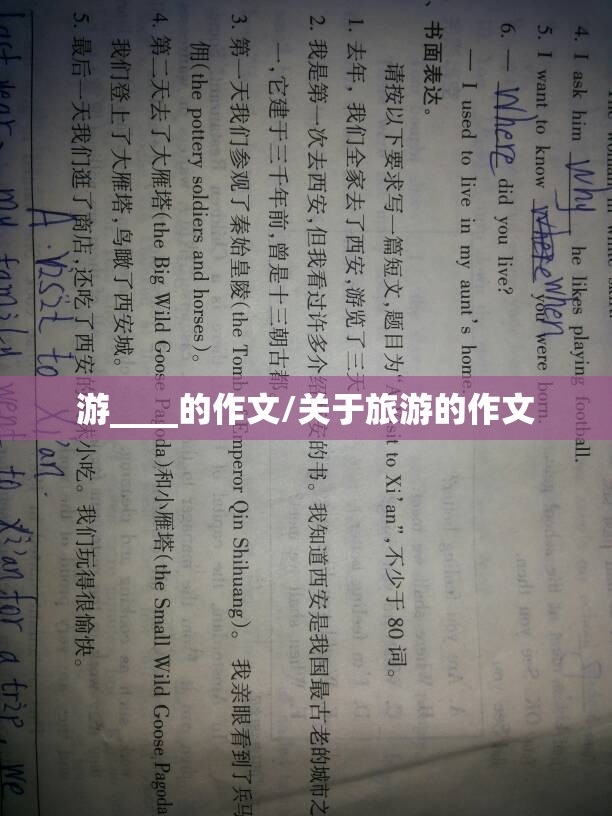 4. I ask him why he likes playing football.
5. I want to know where when you were born.
6. — Where did you live?
— I used to live in my aunt's home.
、书面表达。
请按以下要求写一篇短文,题目为“A sit to Xi'an”,不少于 80 词。
1. 去年,我们全家去了西安,游览了三天
2. 我是第一次去西安,但我看过许多介绍 安的书。我知道西安是我国最古老的城市之
一,它建于三千年前,曾是十三朝古都
3. 第一天我们参观了秦始皇陵(the Tomb Emperor Qin Shihuang)。我亲眼看到了兵马
佣(the pottery soldiers and horses)。
4. 第二天去了大雁塔(the Big Wild Goose Pagoda)和小雁塔(the Small Wild Goose Pagoda
我们登上了大雁塔,鸟瞰了西安城。
5. 最后一天我们逛了商店,还吃了西安的 小吃。我们玩得很愉快。
A visit to Xi'an.
last year, my family went to Xi'an for a trip, we
游____的作文/关于旅游的作文